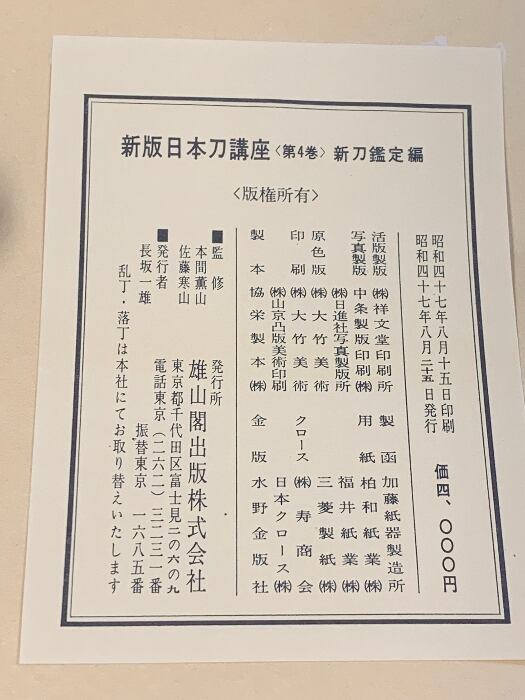 新版日本刀講座〈第4巻〉新刀鑑定編
〈版権所有〉
昭和四十七年八月十五日印刷
昭和四十七年八月二十五日発行
価四、〇〇〇円
活版製版 ㈱祥文堂印刷所
写真製版 中条製版印刷㈱
㈱日進社写真製版所
原色版 ㈱大竹美術
印刷 ㈱大竹美術
㈱山京凸版美術印刷
製本 協栄製本㈱
製函 加藤紙器製造所
用紙 柏和紙業㈱
福井紙業㈱
三菱製紙㈱
クロース ㈱寿商会
日本クロース㈱
金版 水野金版社
■監修
本間薫山
佐藤寒山
■発行者
長坂一雄
発行所
雄山閣出版株式会社
東京都千代田区富士見二の六の九
電話東京(二六二)三二三一番
振替東京 一六八五番
乱丁・落丁は本社にてお取り替えいたします